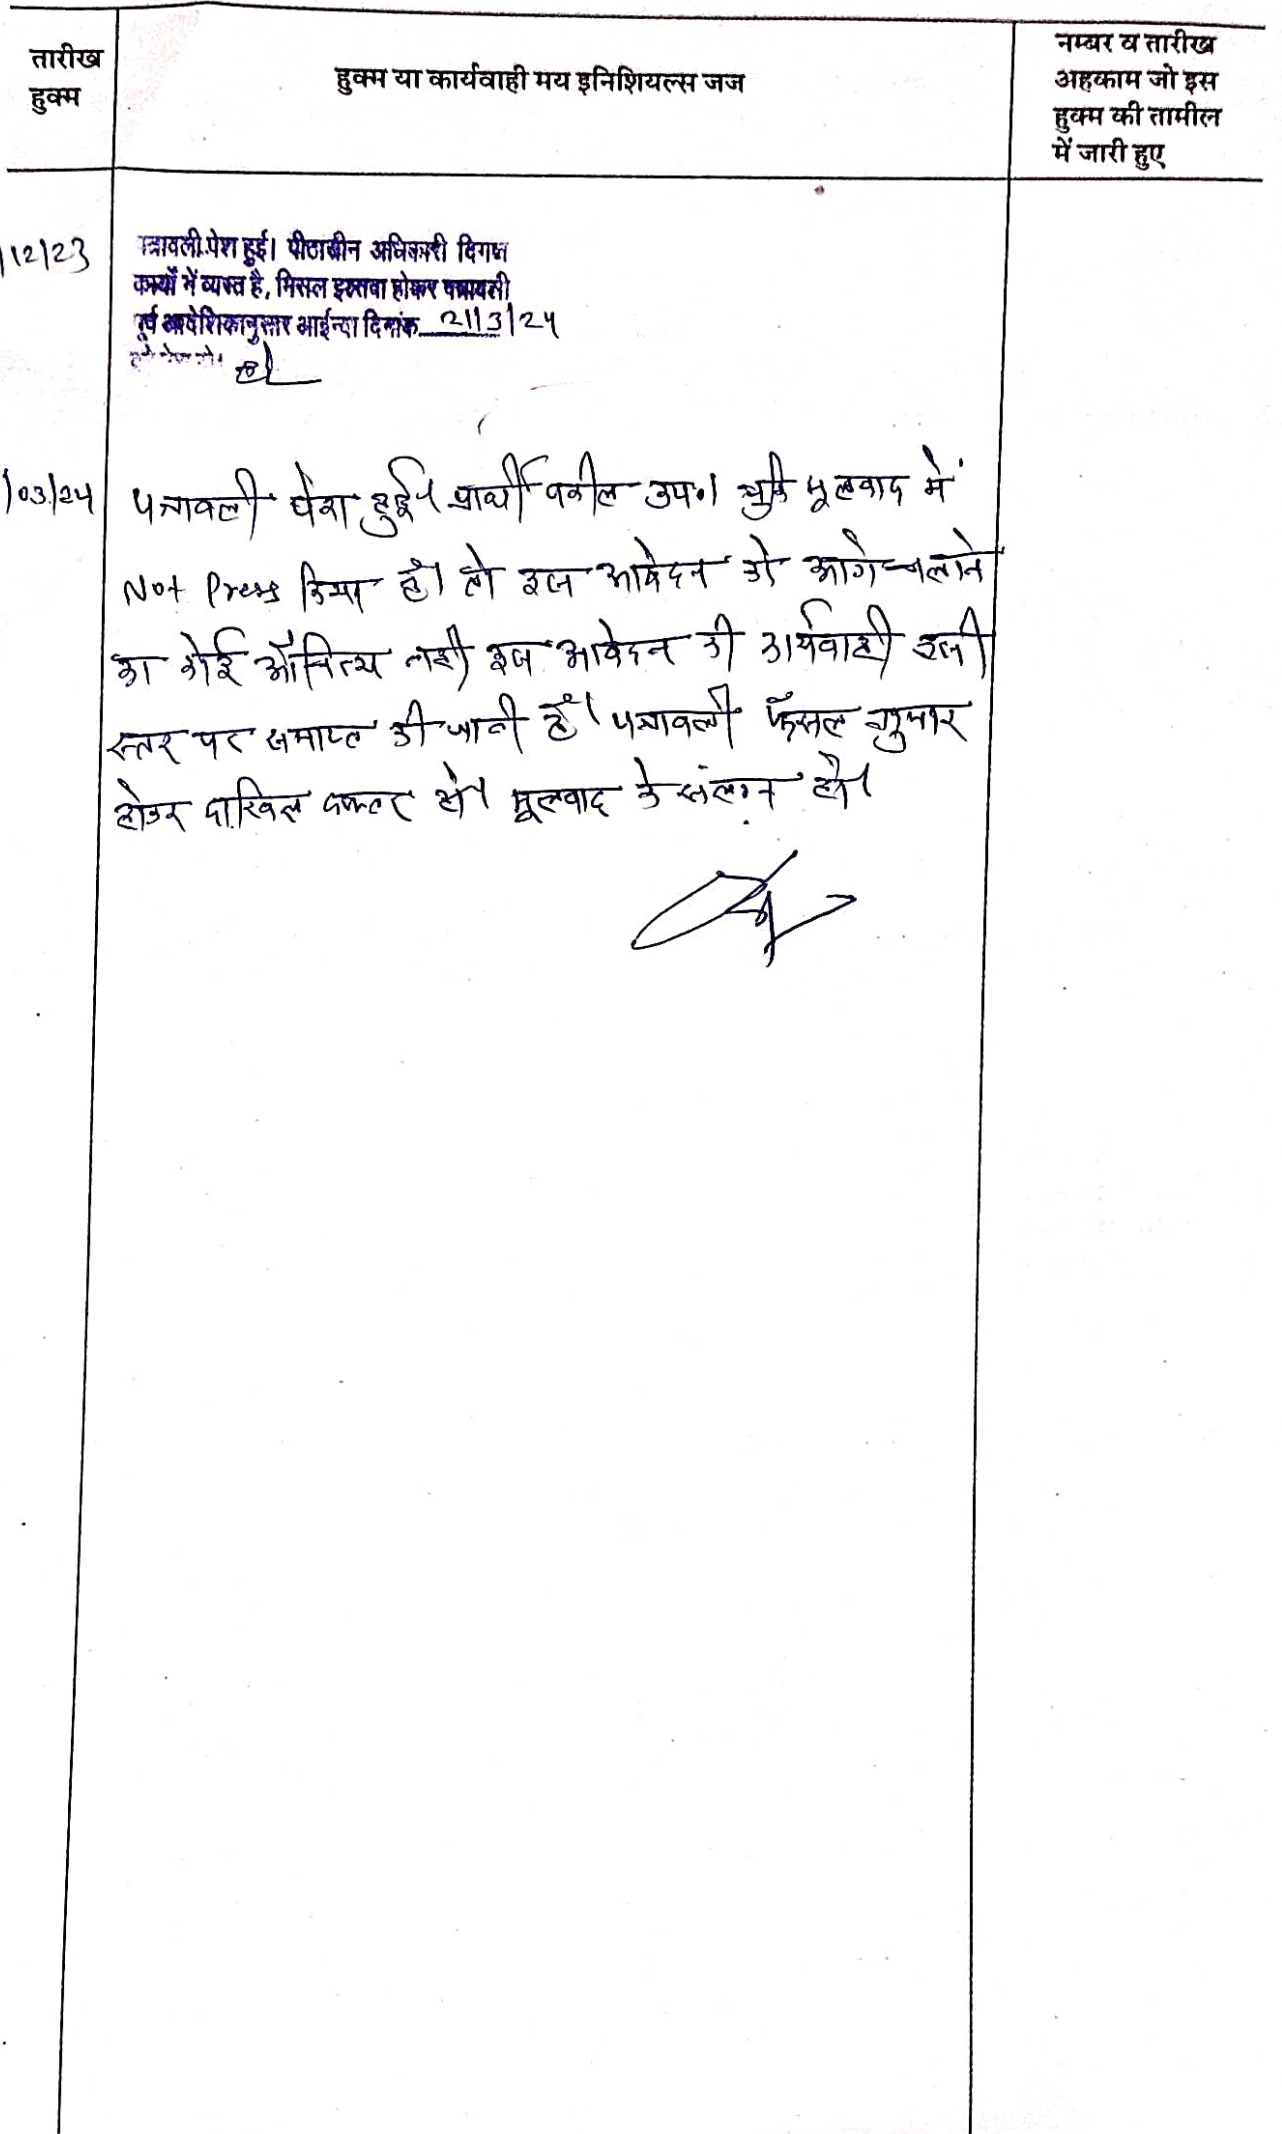 तारीख
हुक्म
हुक्म या कार्यवाही मय इनिशियल्स जज
नम्बर व तारीख
अहकाम जो इस
हुक्म की तामील
में जारी हुए
/12/23
पत्रावली पेश हुई। पीठासीन अधिकारी दिगर
कार्यों में व्यस्त है, मिसल इल्तवा होकर पत्रावली
पूर्व आदेशिकानुसार आईन्दा दिनांक 21/3/24
को पेश हो।
/03/24
पत्रावली पेश हुई। प्रार्थी वकील उप.। चुकि मूलवाद में
Not Press किया है। तो इस आवेदन को आगे चलाने
का कोई औचित्य नही इस आवेदन की कार्यवाही इसी
स्तर पर समाप्त की जाती है। पत्रावली फैसल शुमार
होकर दाखिल दफ्तर हो। मूलवाद के संलग्न हो।